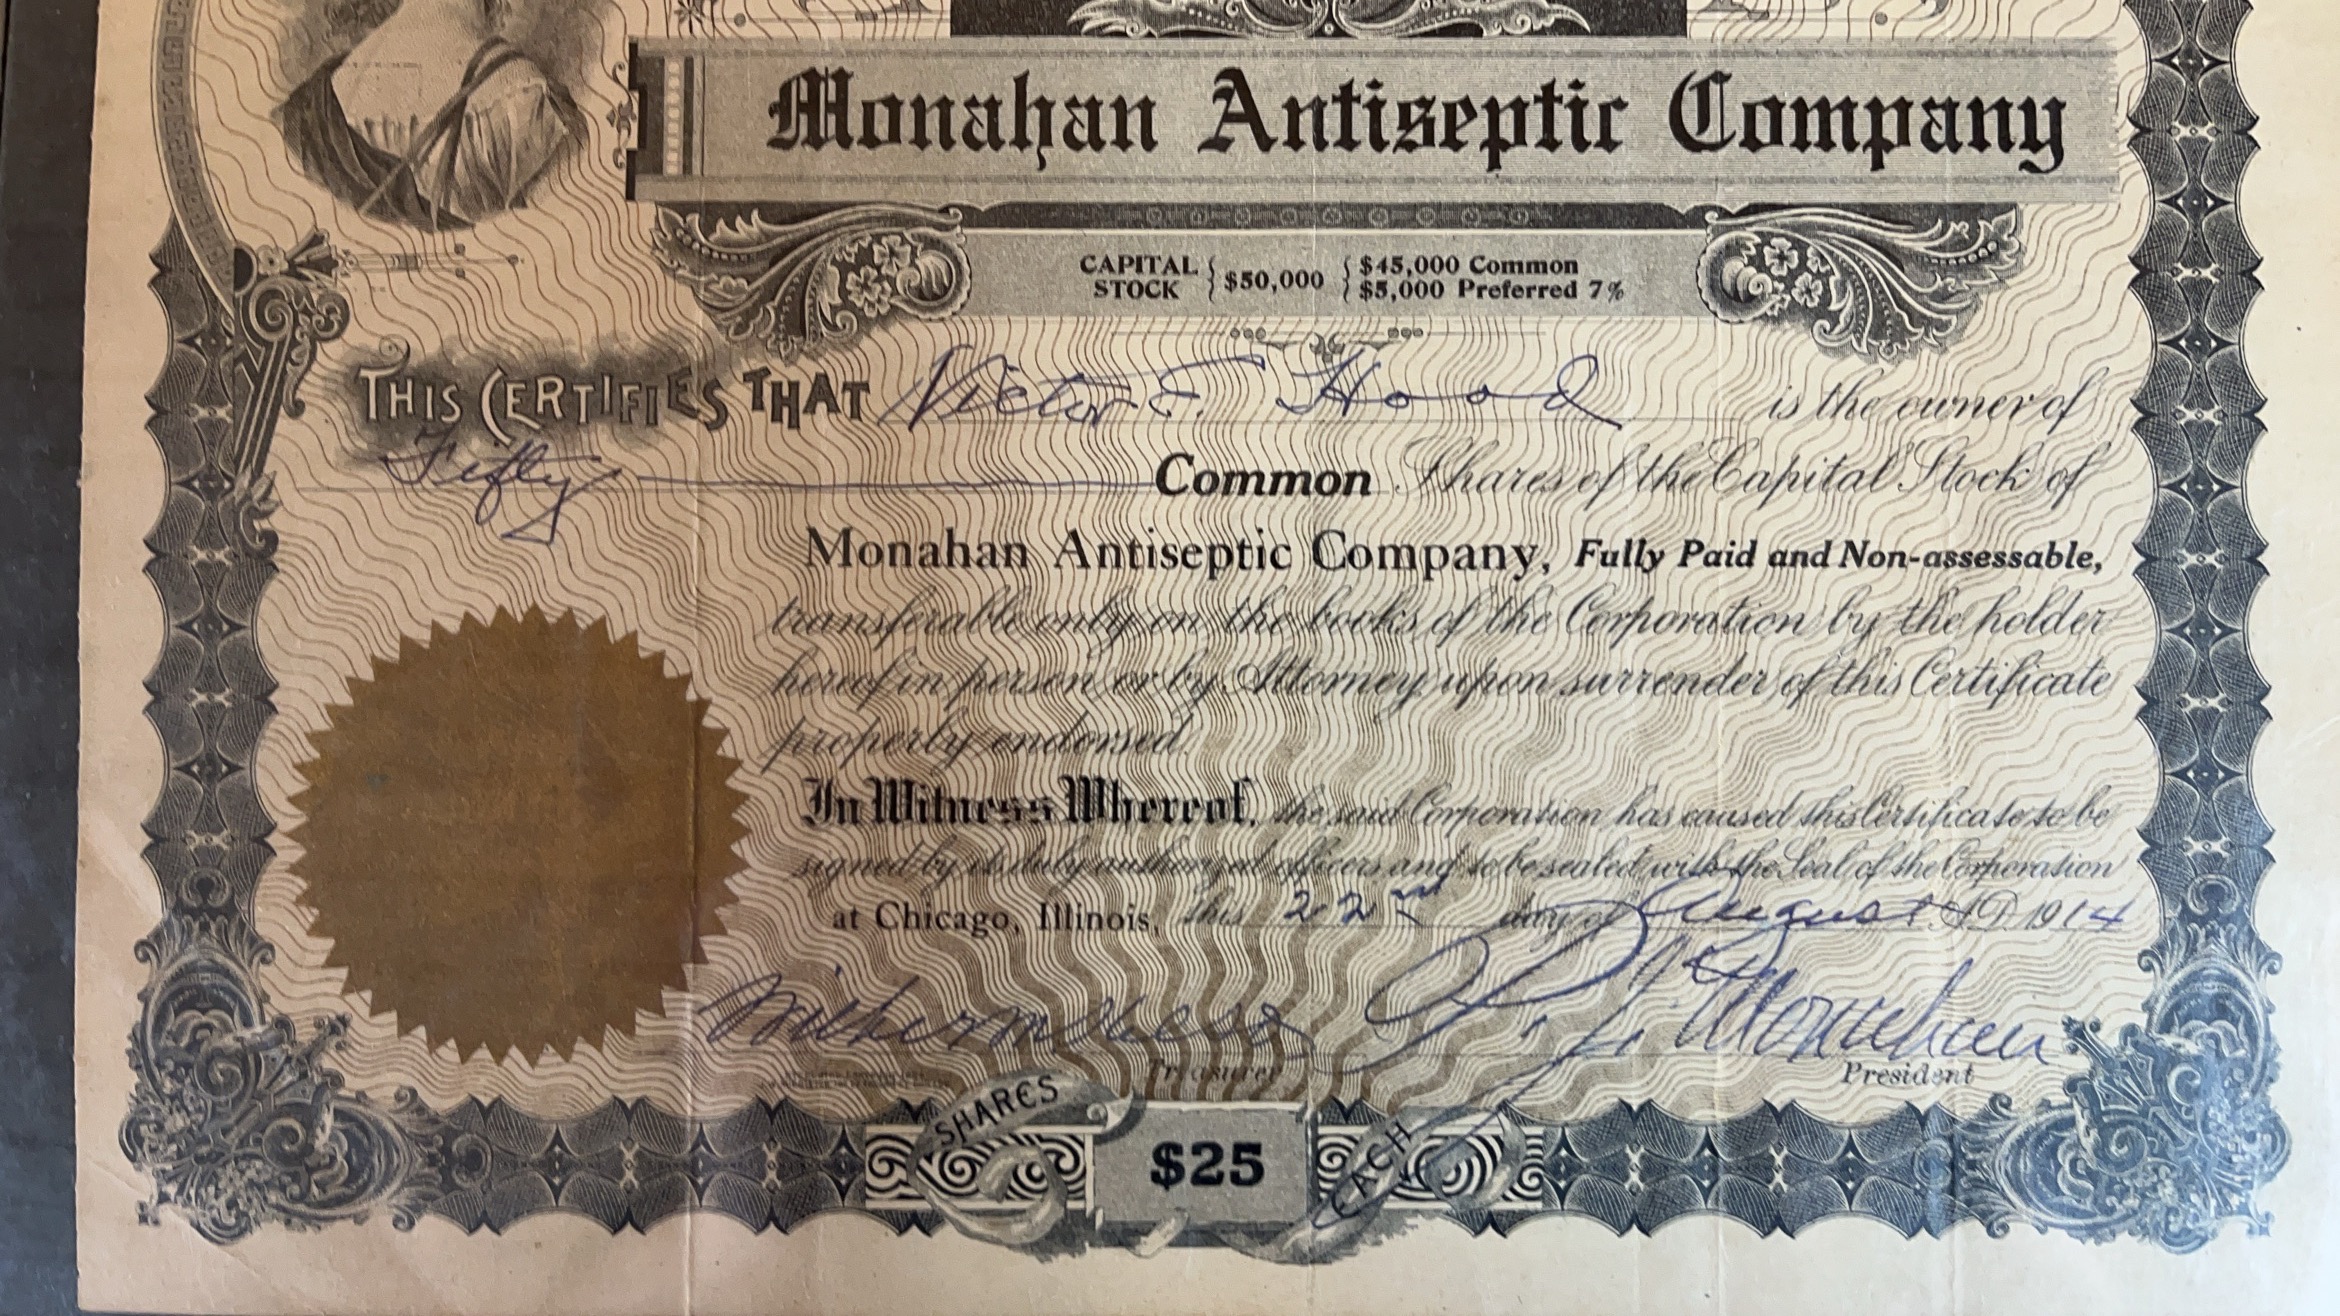 Monahan Antiseptic Company
CAPITAL STOCK } $50,000 { $45,000 Common
$5,000 Preferred 7%
THIS CERTIFIES THAT Victor F. Hood is the owner of
Fifty Common Shares of the Capital Stock of
Monahan Antiseptic Company, Fully Paid and Non-assessable,
transferable only on the books of the Corporation by the holder
hereof in person or by Attorney upon surrender of this Certificate
properly endorsed.
In Witness Whereof, the said Corporation has caused this Certificate to be
signed by its duly authorized officers and to be sealed with the Seal of the Corporation
at Chicago, Illinois, this 22nd day of August A.D. 1914
Monahan
Treasurer
President
SHARES $25 EACH